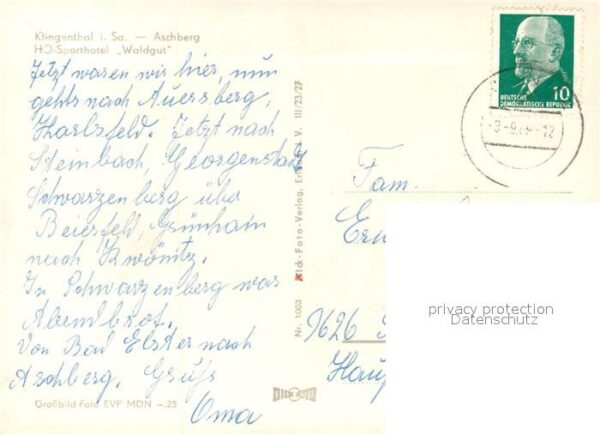 Klingenthal i. Sa. — Aschberg
HO-Sporthotel „Waldgut"
Jetzt waren wir hier, nun
gehts nach Auersberg,
Karlsfeld. Jetzt nach
Steinbach, Georgenstadt
Schwarzenberg über
Beierfeld, Grünhain
nach Zwönitz.
In Schwarzenberg war
Abendbrot.
Von Bad Elster nach
Aschberg. Gruß
Oma
Großbild-Foto EVP MDN -.25
Nr. 1003 Klick-Foto-Verlag, V. III/23/27
10
DEUTSCHE
DEMOKRATISCHE REPUBLIK
Fam.
9626
privacy protection
Datenschutz